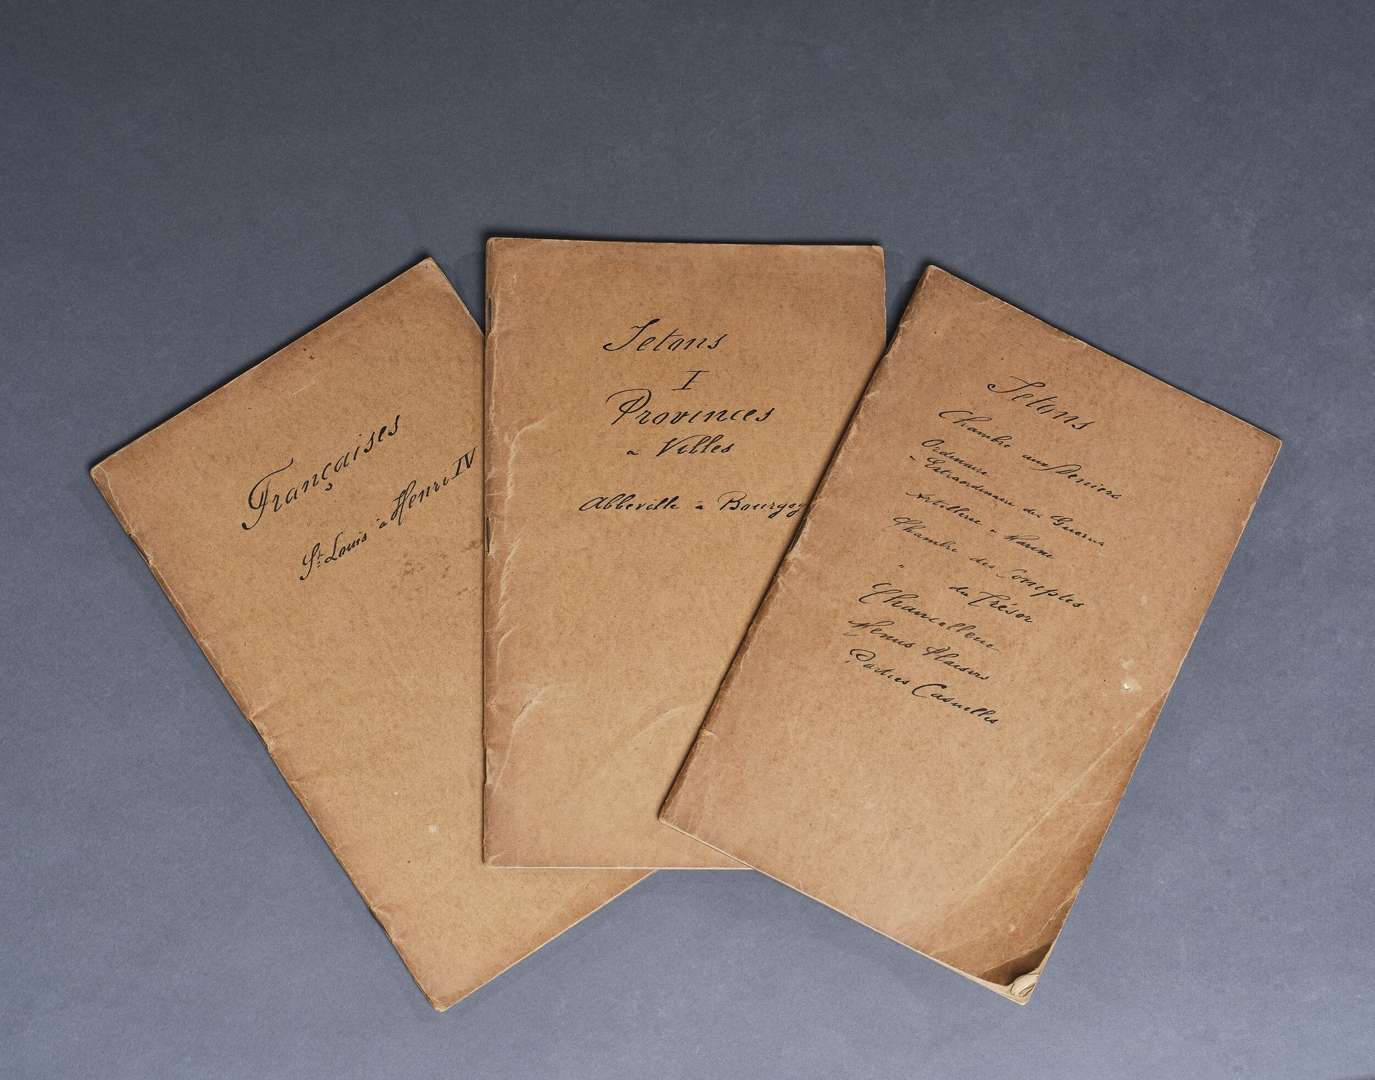 Françaises
St. Louis à Henri IV
Jetons
I
Provinces
& Villes
Abbeville à Bourgog
Jetons
Chambre aux Deniers
Ordinaire
& Extraordinaire des Guerres
Artillerie & Marine
Chambre des Comptes
" du Trésor
Chancellerie
Menus Plaisirs
Parties Casuelles